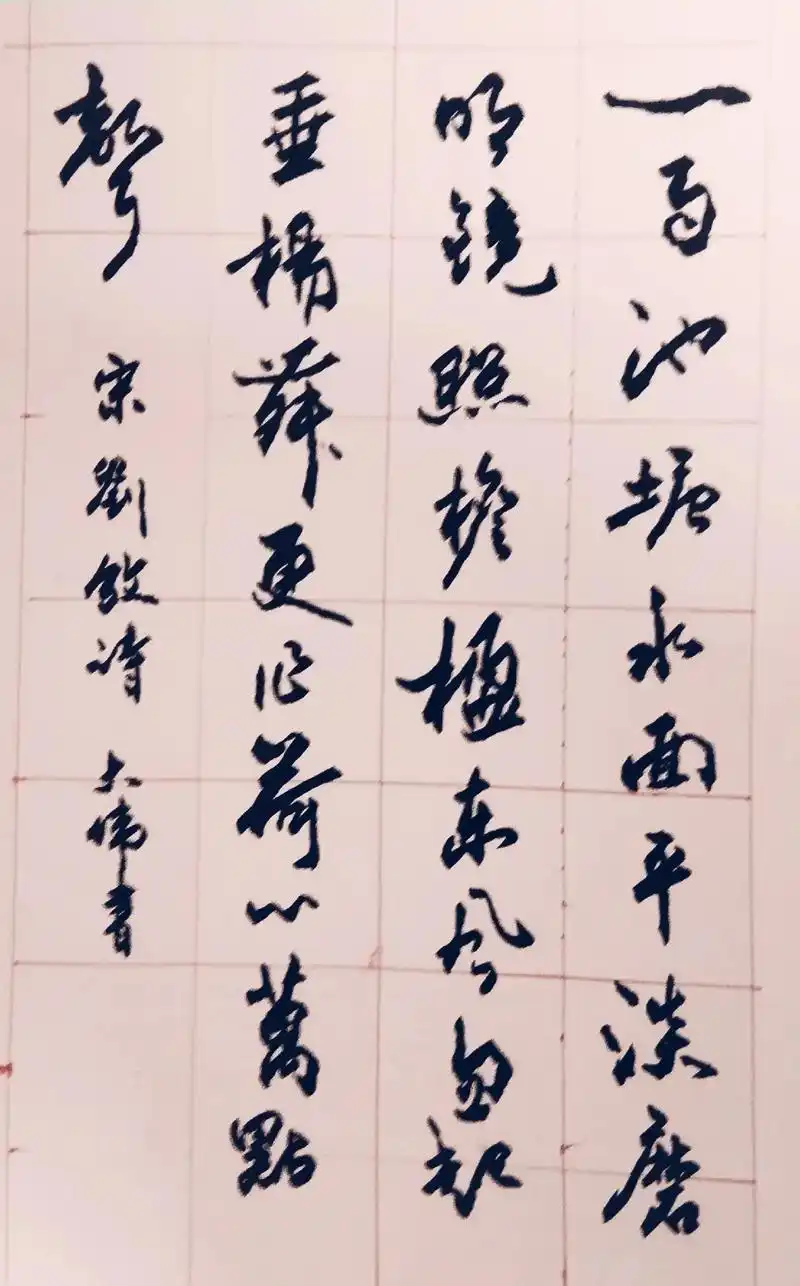 一雨池塘水面平淡磨
明鏡照檐楹東風忽起
垂楊舞更作荷心萬點
聲 宋劉敞詩 大偉書